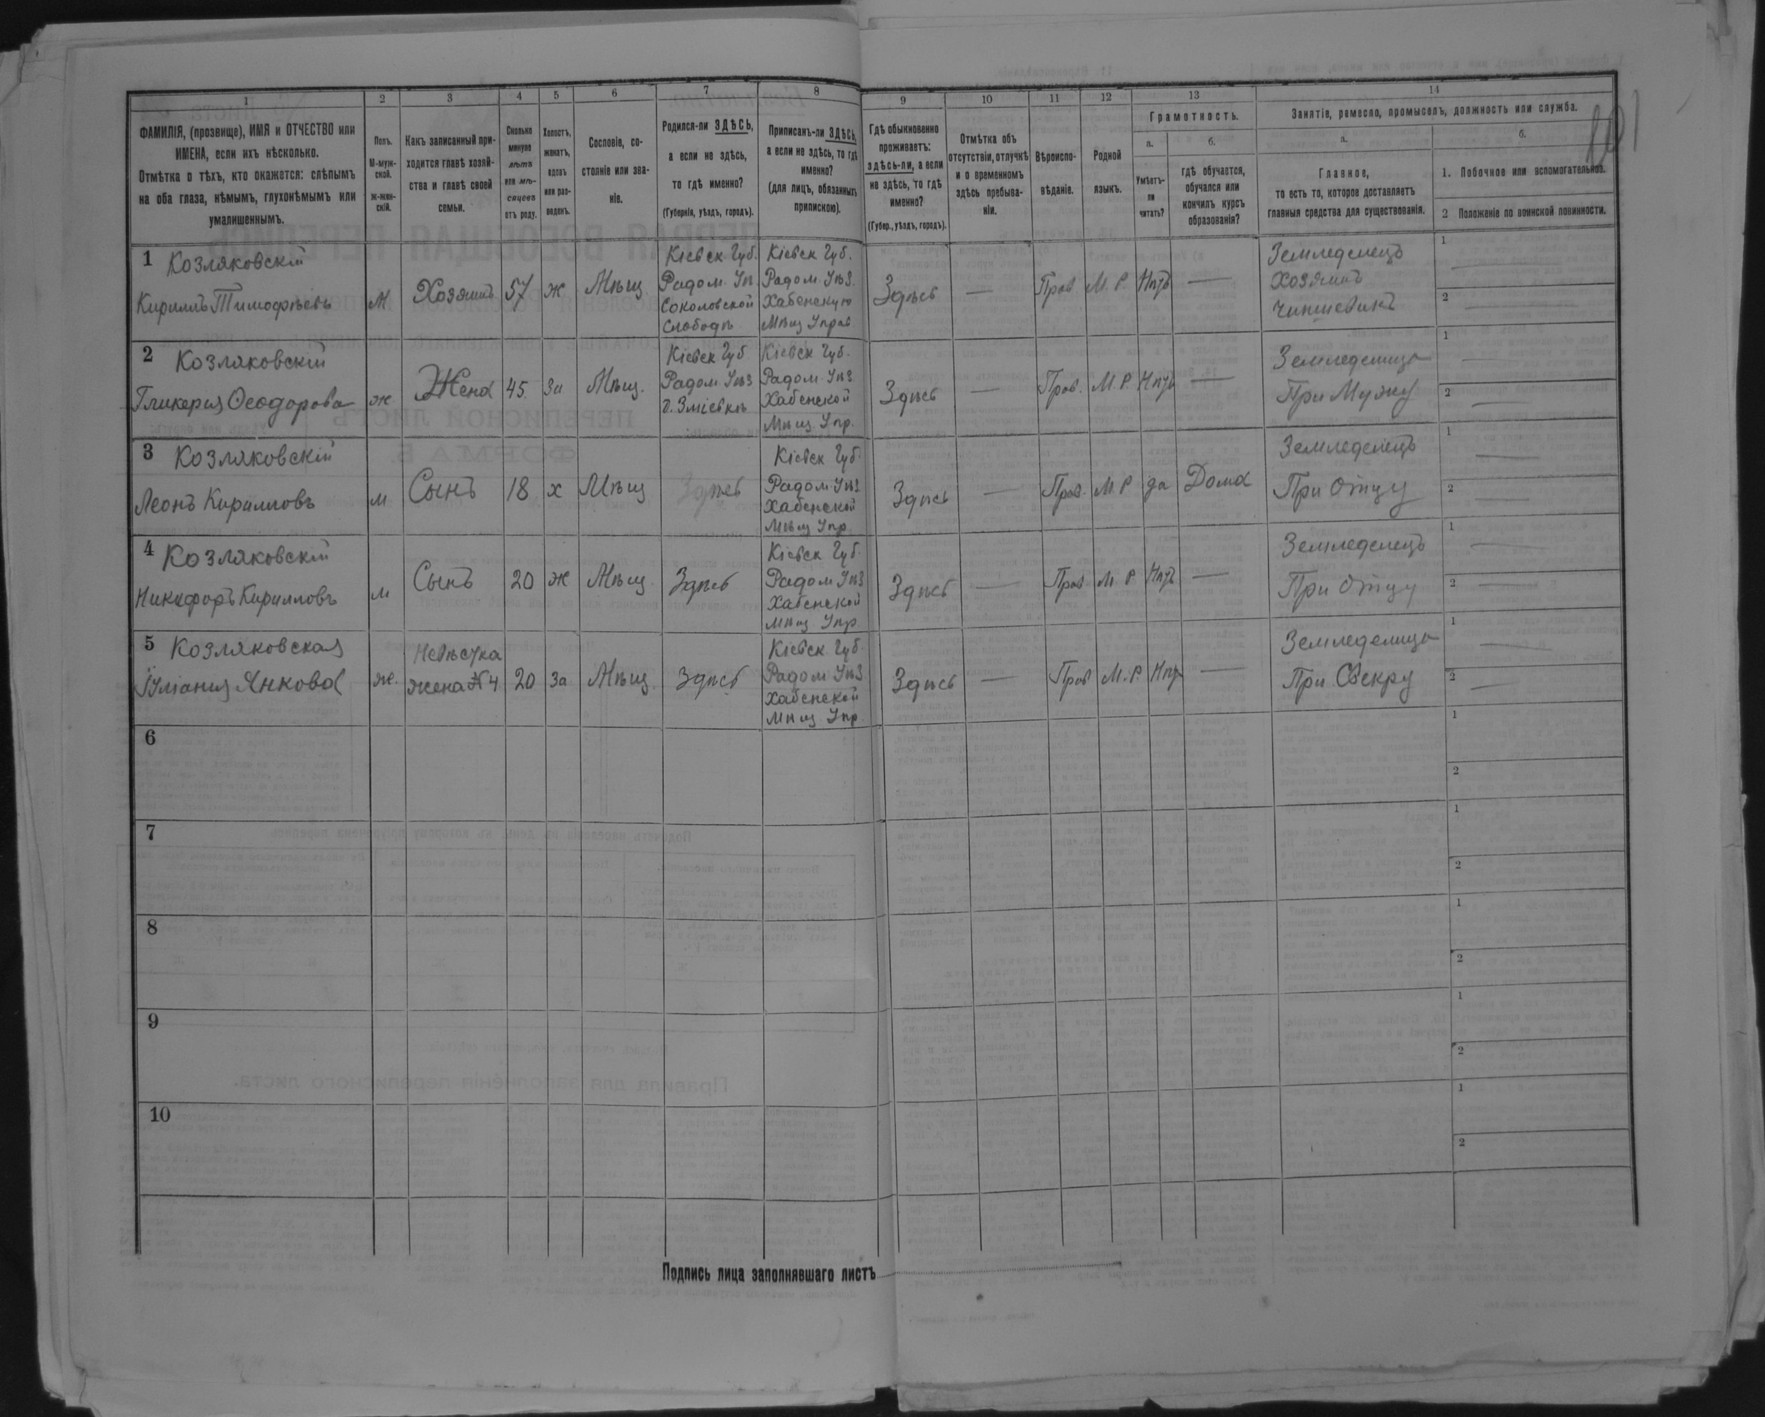 1 2 3 4 5 6 7 8 9 10 11 12 13 14
ФАМИЛІЯ, (прозвище), ИМЯ и ОТЧЕСТВО или
ИМЕНА, если ихъ нѣсколько.
Отмѣтка о тѣхъ, кто окажется: слѣпымъ
на оба глаза, нѣмымъ, глухонѣмымъ или
умалишеннымъ.
Полъ.
М-муж-
ской.
ж-жен-
скій.
Какъ записанный при-
ходится главѣ хозяй-
ства и главѣ своей
семьи.
Сколько
минуло
лѣтъ
или мѣ-
сяцевъ
отъ роду.
Холостъ,
женатъ,
вдовъ
или раз-
веденъ.
Сословіе, со-
стояніе или зва-
ніе.
Родился-ли ЗДѢСЬ,
а если не здѣсь,
то гдѣ именно?
(Губернія, уѣздъ, городъ).
Приписанъ-ли ЗДѢСЬ,
а если не здѣсь, то гдѣ
именно?
(для лицъ, обязанныхъ
припискою).
Гдѣ обыкновенно
проживаетъ:
здѣсь-ли, а если
не здѣсь, то гдѣ
именно?
(Губер., уѣздъ, городъ).
Отмѣтка объ
отсутствіи, отлучкѣ
и о временномъ
здѣсь пребыва-
ніи.
Вѣроиспо-
вѣданіе.
Родной
языкъ.
Грамотность.
а.
Умѣетъ-
ли
читать?
б.
гдѣ обучается,
обучался или
кончилъ курсъ
образованія?
Занятіе, ремесло, промыселъ, должность или служба.
а.
Главное,
то есть то, которое доставляетъ
главныя средства для существованія.
б.
1. Побочное или вспомогательное.
2 Положеніе по воинской повинности.
1 Козляковскій
Кириллъ Тимофѣевъ
М
Хозяинъ
57
ж
Мѣщ
Кіевск Губ.
Радом. Уѣ
Соколовской
Слободѣ
Кіевск Губ.
Радом Уѣз.
Хабенскую
Мѣщ Управ
Здѣсь
—
Прав
М. Р.
Нѣтъ
—
Земледелецъ
Хозяинъ
Чиншевикъ
1
2
2 Козляковскій
Гликерия Феодорова
ж
Жена
45
За
Мѣщ.
Кіевск Губ
Радом Уѣз
Кіевск Губ.
Радом Уѣз
Хабенской
Мѣщ Упр.
Здѣсь
—
Прав.
М. Р.
Нѣтъ
—
Земледелица
При Мужу
1
2
3 Козляковскій
Леонъ Кирилловъ
м
Сынъ
18
х
Мѣщ
Здѣсь
Кіевск Губ
Радом Уѣз
Хабенской
Мѣщ Упр
Здѣсь
—
Прав.
М. Р
да
Дома
Земледелецъ
При Отцу
1
2
4 Козляковскій
Никифоръ Кирилловъ
м
Сынъ
20
ж
Мѣщ
Здѣсь
Кіевск Губ
Радом Уѣз
Хабенской
Мѣщ Упр
Здѣсь
—
Прав
М. Р
Нѣтъ
—
Земледелецъ
При Отцу
1
2
5 Козляковская
Іуліания Янкова
ж.
Невѣстка
жена № 4
20
За
Мѣщ
Здѣсь
Кіевск Губ
Радом Уѣз
Хабенской
Мѣщ Упр
Здѣсь
—
Прав
М. Р
Нѣтъ
—
Земледелица
При Свекру
1
2
6
1
2
7
1
2
8
1
2
9
1
2
10
1
2
Подпись лица заполнявшаго листъ